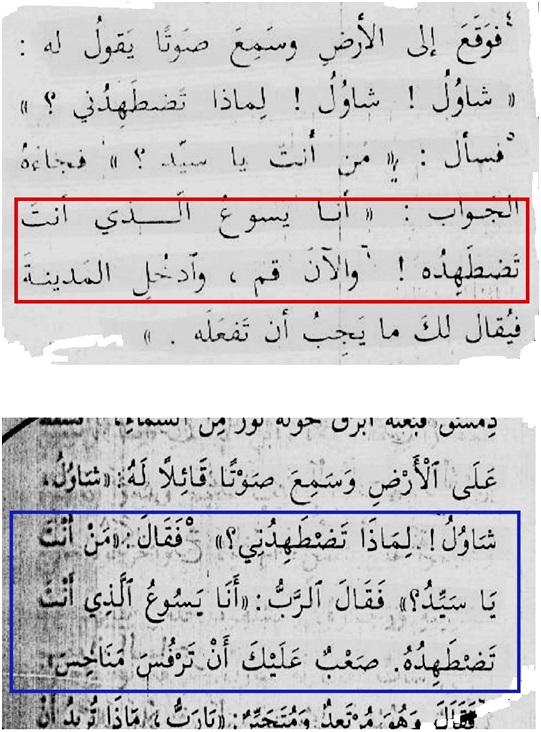 ٤فوَقَعَ إلى الأرضِ وسَمِعَ صَوتًا يَقولُ له :
« شاوُلُ ! شاوُلُ ! لِماذا تَضطَهِدُني ؟ »
٥فسأل : « مَن أنتَ يا سيِّد ؟ » فجاءَهُ
الجَواب : « أنا يَسوعُ الَّـذي أنتَ
تَضطَهِدُه ! ٦والآنَ قم ، وٱدخُلِ المَدينـةَ
فيُقال لكَ ما يَجِبُ أن تَفعَلَه . »
دِمَشْقَ فَبَغْتَةً أَبْرَقَ حَوْلَهُ نُورٌ مِنَ السَّمَاءِ،
عَلَى ٱلْأَرْضِ وَسَمِعَ صَوْتًا قَائِلًا لَهُ: «شَاوُلُ،
شَاوُلُ! لِمَاذَا تَضْطَهِدُنِي؟» ٥فَقَالَ: «مَنْ أَنْتَ
يَا سَيِّدُ؟» فَقَالَ ٱلرَّبُّ: «أَنَا يَسُوعُ ٱلَّذِي أَنْتَ
تَضْطَهِدُهُ. صَعْبٌ عَلَيْكَ أَنْ تَرْفُسَ مَنَاخِسَ.
فَقَالَ وَهُوَ مُرْتَعِدٌ وَمُتَحَيِّرٌ: «يَارَبُّ، مَاذَا تُرِيدُ أَنْ